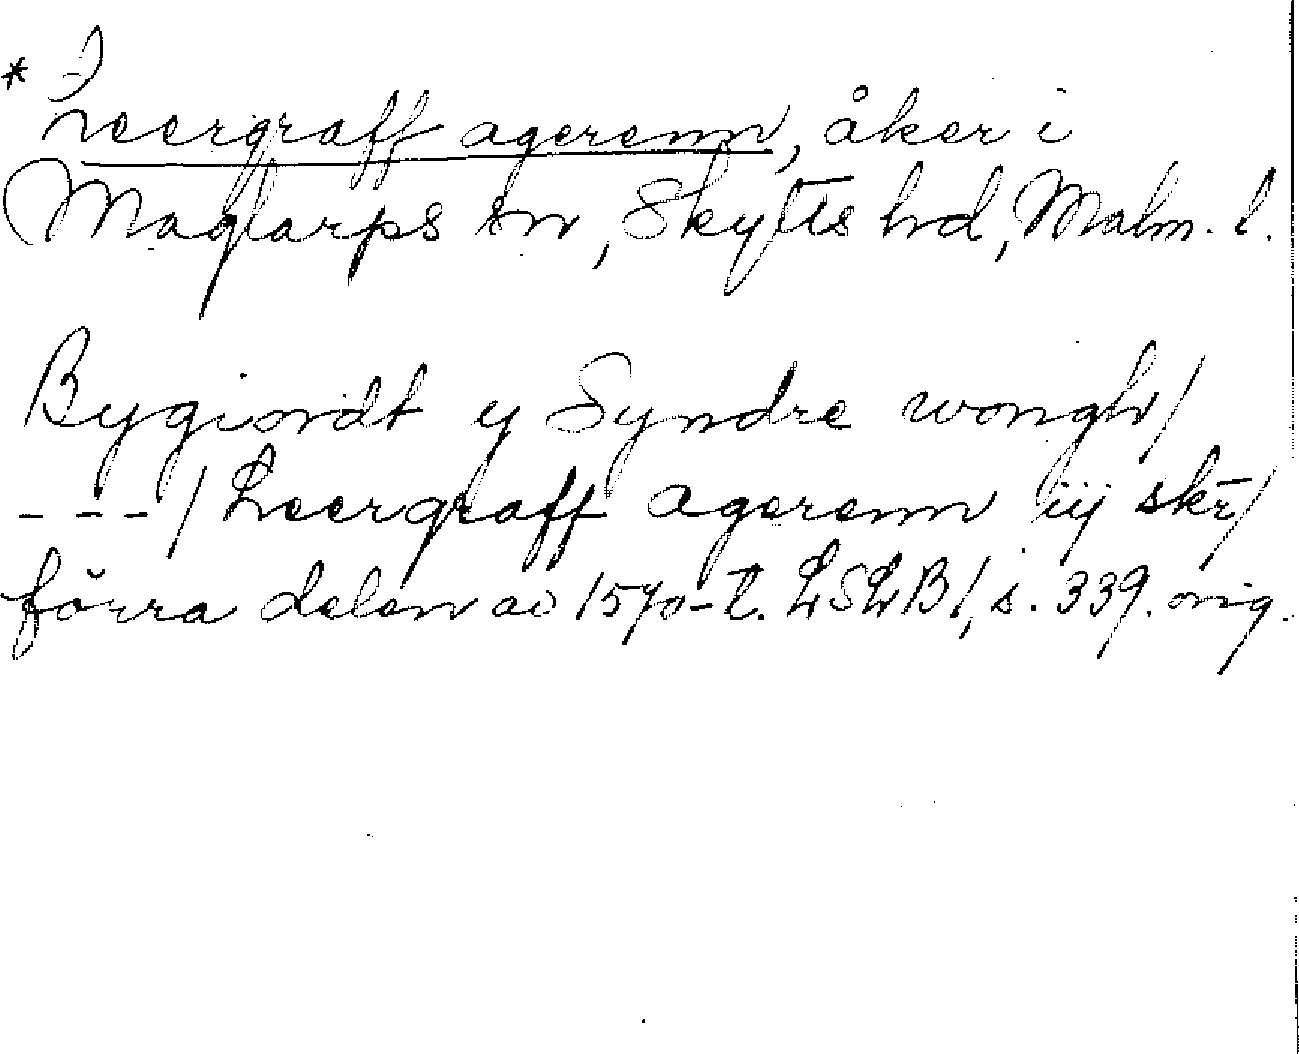 * Leergraff agerenn, åker i
Maglarps sn, Skytts hd, Malm. l.
Bygiordt y Syndre wongh/
- - -/ Leergraff agerenn iij skr̄/
förra delen av 1570-t. LSLB1, s. 339. orig.